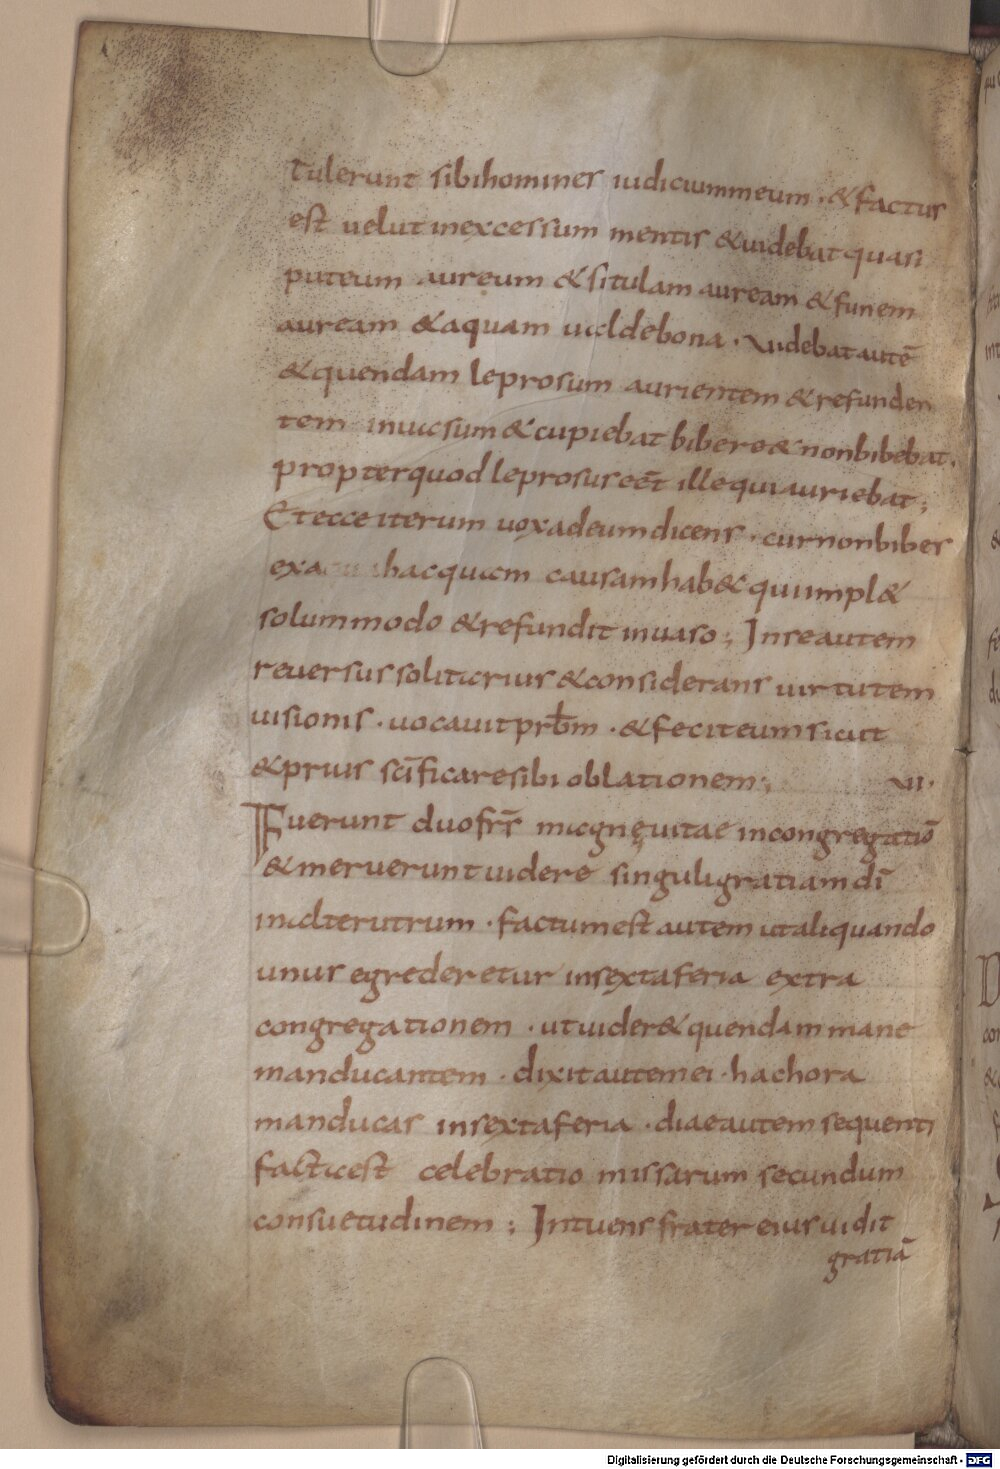 Tulerunt sibihomines iudiciummeum · & factus
est uelut inexcessum mentis &uidebat quasi
puteum aureum & situlam auream & funem
auream &aquam ualdebona · Uidebat autē
& quendam leprosum aurientem & refunden
tem inuasum & cupiebat bibere & nonbibebat.
propterquod leprosus eēt illequi auriebat;
Et ecce iterum uox adeum dicens · cur nonbibes
exa hac quam causam hab& qui impl&
solummodo & refundit inuaso; Inse autem
reuersus solitarius & considerans uirtutem
uisionis · uocauit prb̄m · & fecit eum sicut
& prius sc̄ificare sibi oblationem; VI·
Fuerunt duo fr̄s magnę uitae in congregatiō
& meruerunt uidere singuli gratiam dī
inalterutrum · factum est autem ut aliquando
unus egrederetur insexta feria extra
congregationem · ut uider& quendam mane
manducantem · dixit autem ei · hac hora
manducas insexta feria · diae autem sequenti
facta est celebratio missarum secundum
consuetudinem; Intuens frater eius uidit
gratiā
Digitalisierung gefördert durch die Deutsche Forschungsgemeinschaft - DFG